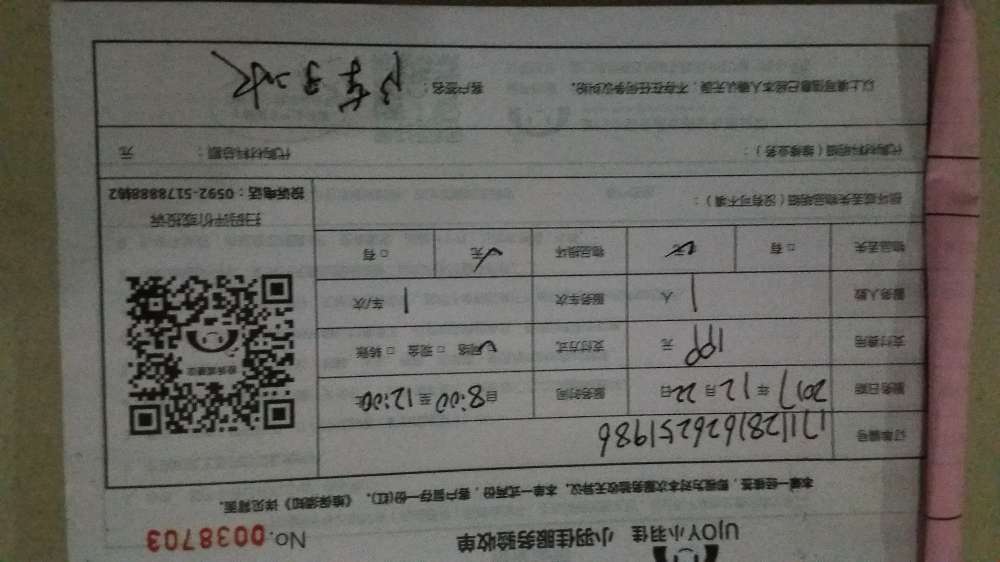 UJOY小羽佳 小羽佳服务验收单 No. 0038703
本单一经签签，即视为对本次服务验收无异议。本单一式两份，客户留存一份(红)。《维保须知》详见背面。
订单编号 1711281626251986
服务日期 2017年12月22日 服务时间 自8:00至12:00
支付费用 199元 支付方式 ✓网络 □现金 □转账
服务人数 1人 服务车次 1车/次
物品丢失 □有 ✓无 物品损坏 ✓无 □有
损坏或丢失物品明细（没有可不填）：
代购材料明细（维修业务）： 代购材料总额： 元
以上填写信息已经本人确认无误，不存在任何争议纠纷。 客户签名：
您诉或建议
扫码评价或投诉
投诉电话：0592-5178888转2